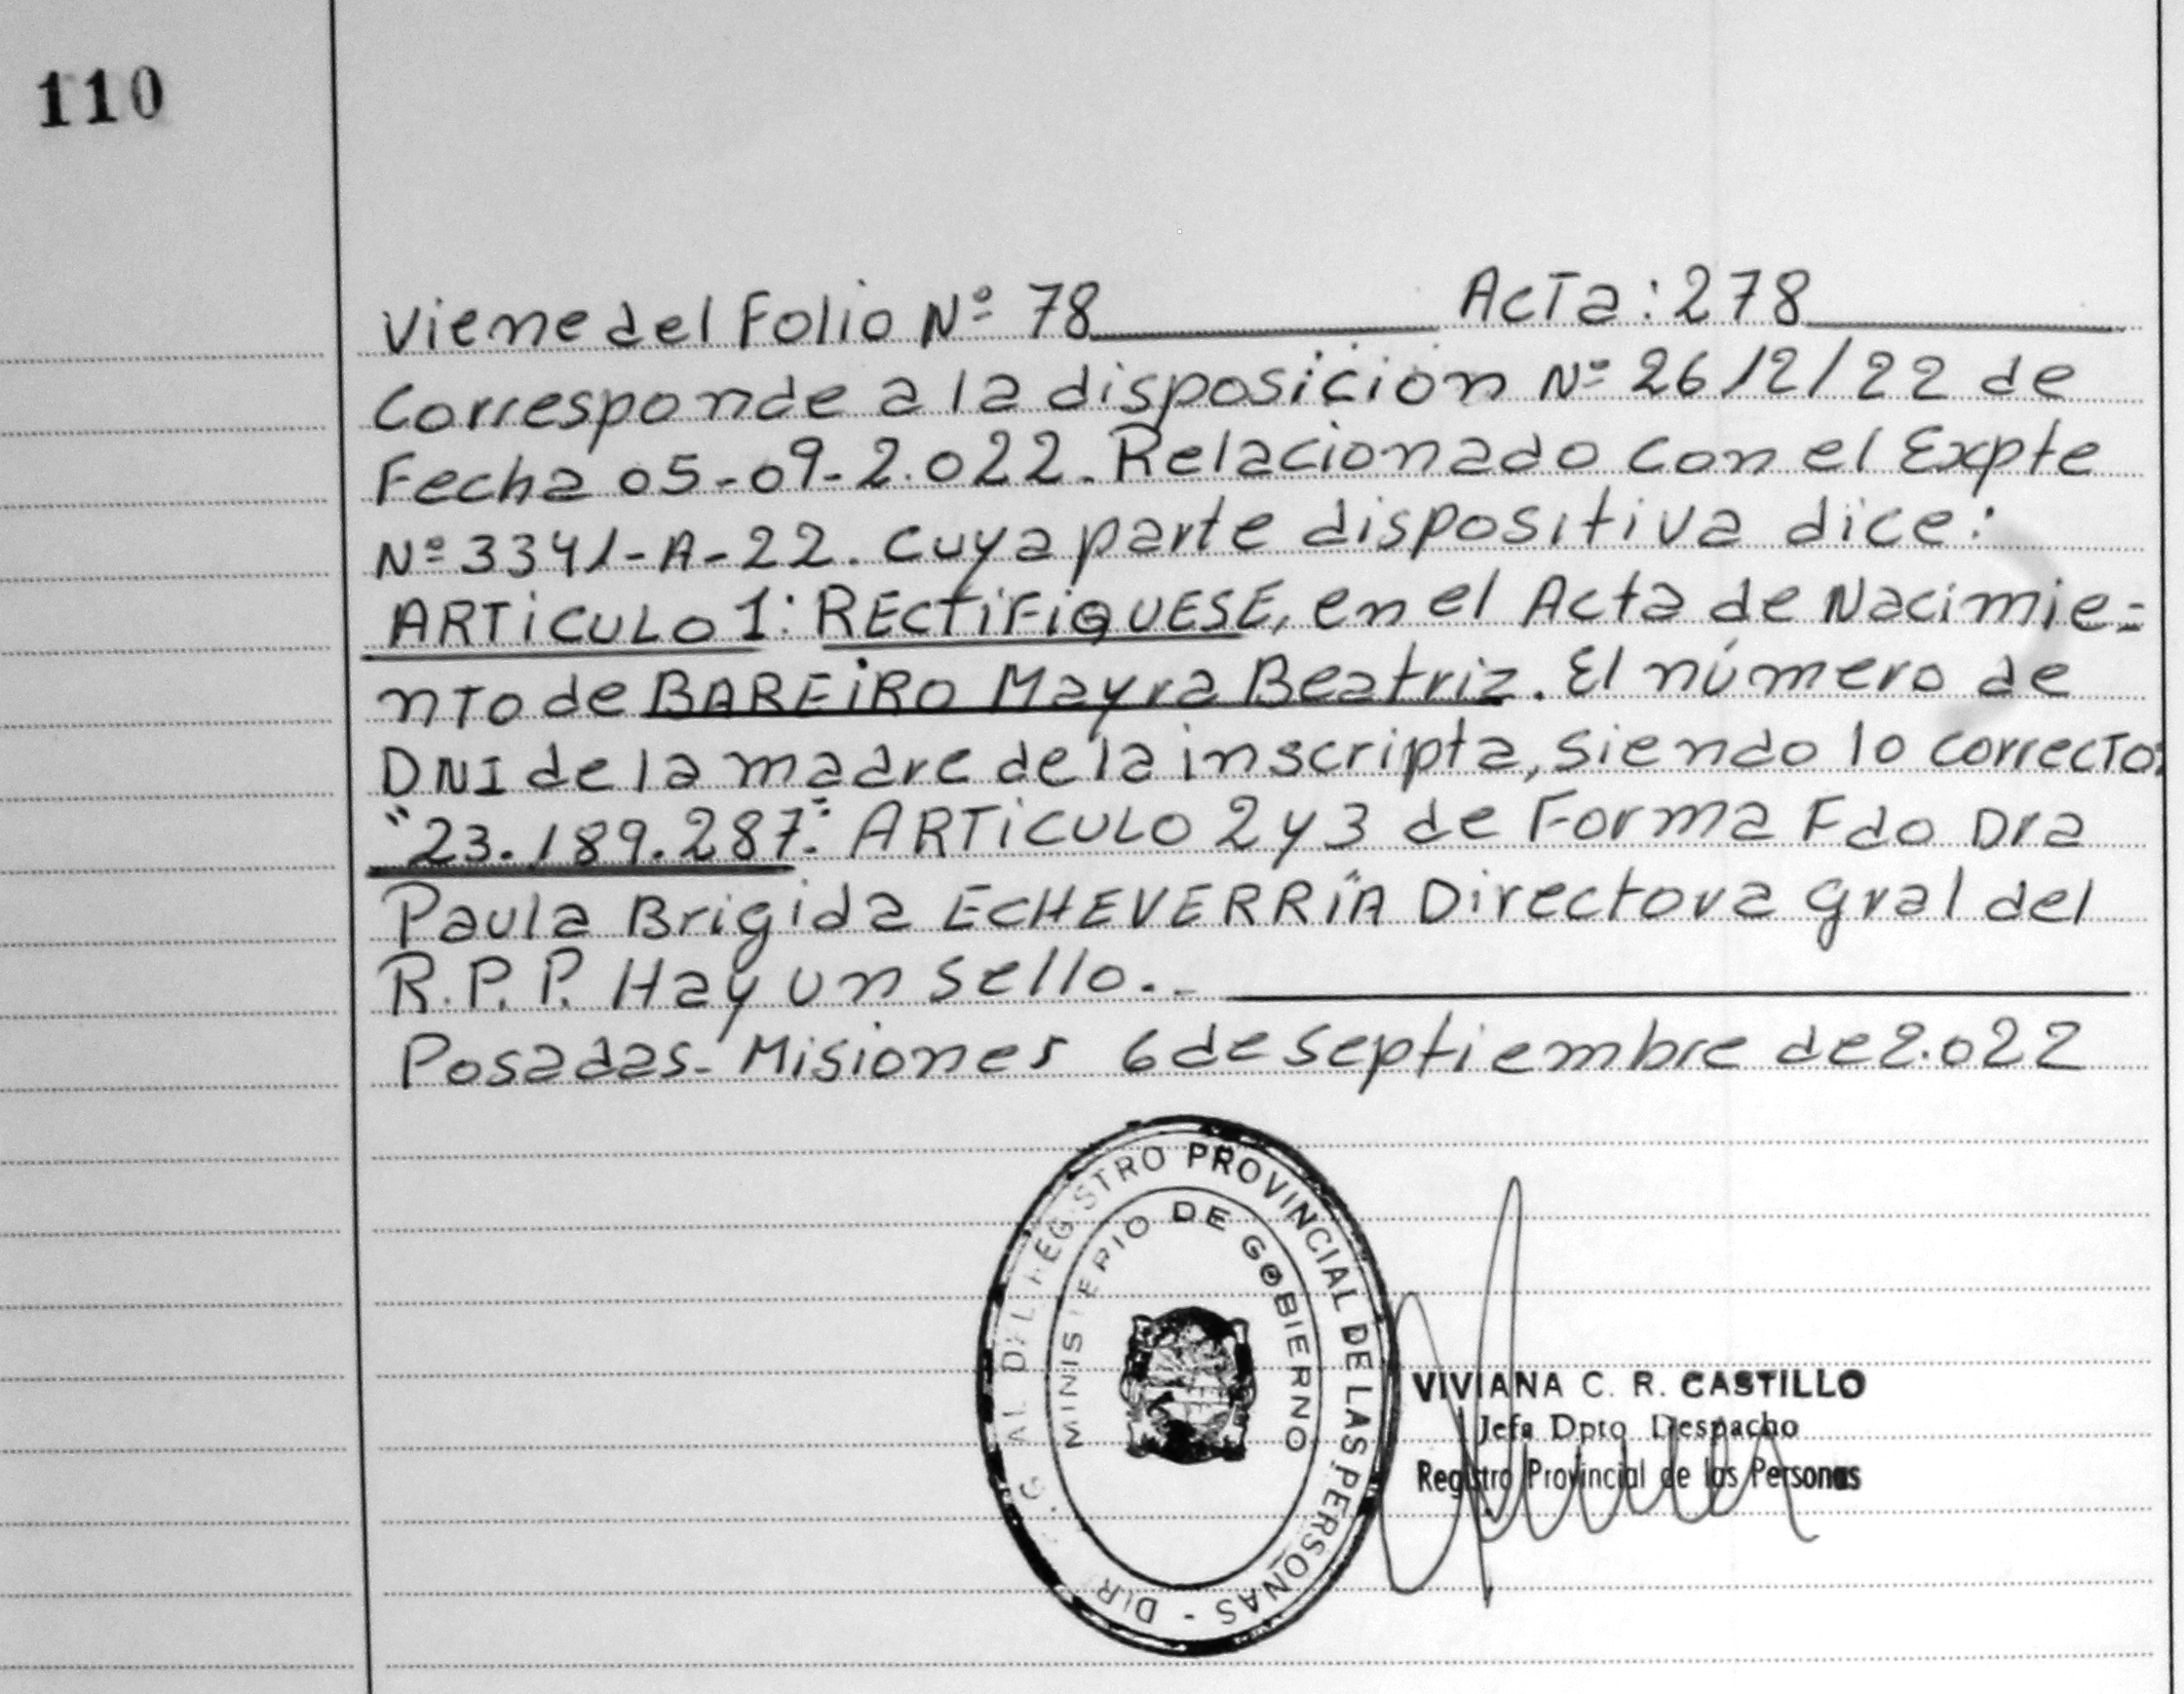 110
Viene del Folio Nº 78 Acta: 278
Corresponde a la disposición Nº 2612/22 de
Fecha 05-09-2.022. Relacionado con el Expte
Nº 3341-A-22. cuya parte dispositiva dice:
ARTiCULO 1: RECTiFiQUESE, en el Acta de Nacimie=
nto de BAREiRO Mayra Beatriz. El número de
DNI de la madre de la inscripta, siendo lo correcto:
"23.189.287". ARTiCULO 2 y 3 de Forma Fdo Dra
Paula Brigida ECHEVERRíA Directora gral del
R.P.P. Hay un sello.-
Posadas- Misiones 6 de septiembre de 2.022
REGISTRO PROVINCIAL DE LAS PERSONAS - DIR
MINISTERIO DE GOBIERNO
VIVIANA C. R. CASTILLO
Jefa Dpto Despacho
Registro Provincial de las Personas